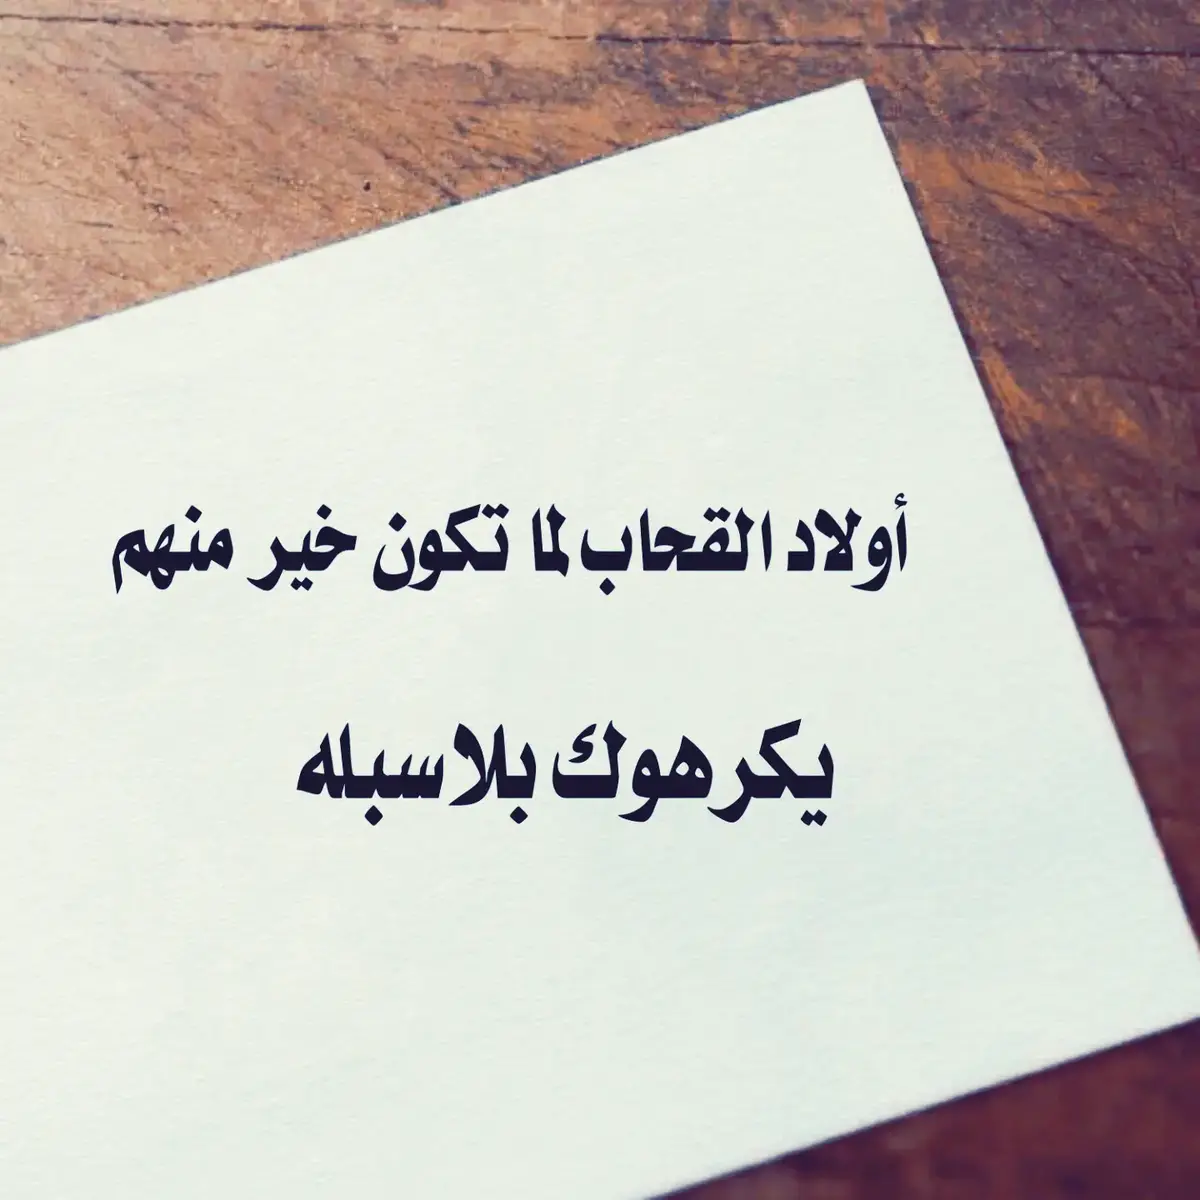 أولاد القحاب لما تكون خير منهم
يكرهوك بلاسبله